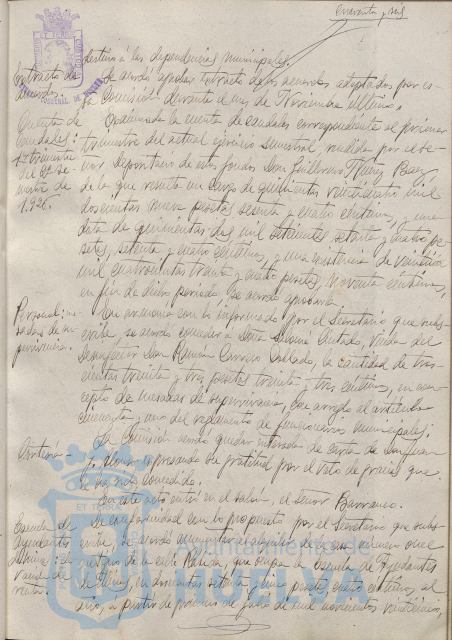 Cuarenta y seis
destino a las dependencias municipales.
Extracto de acuerdos.
Se acordó aprobar extracto de los acuerdos adoptados por esta Comisión durante el mes de Noviembre último.
Cuenta de Caudales: 1er trimestre del 2º Semestre de 1.926.
Examinada la cuenta de caudales correspondiente al primer
trimestre del actual ejercicio semestral, rendida por el Señor
depositario de estos fondos Don Guillermo
de la que resulta un cargo de quinientas veinticuatro mil
doscientas nueve pesetas sesenta y cuatro céntimos, y una
data de quinientas dos mil setecientas setenta y cuatro pesetas,
setenta y cuatro céntimos, y una existencia de veintiuna
mil cuatrocientas treinta y cuatro pesetas, noventa céntimos,
en fin de dicho período, se acordó aprobarla.
Personal: mesadas de supervivencia.
De acuerdo con lo informado por el Secretario que suscribe,
se acordó conceder a Doña viuda del
Don Ramón Collado, la cantidad de trescientas
treinta y tres pesetas treinta y tres céntimos, en concepto
de mesadas de supervivencia, con arreglo al artículo
cincuenta y uno del reglamento de funcionarios municipales.
La Comisión acordó quedar enterada de carta de
expresando su gratitud por el voto de gracias que
le ha sido concedido.
En este acto entró en el salón, el señor Barranco.
Escuela de Ayudantes
De conformidad con lo propuesto por el Secretario que suscribe,
se acordó aumentar el alquiler de la casa número once
de esta Capital, que ocupa la Escuela de Ayudantes
de Minas, en doscientas setenta y una pesetas, cuatro céntimos, al
año, a partir de primero de Enero de mil novecientos veintisiete,
Ayuntamiento de
HUELVA